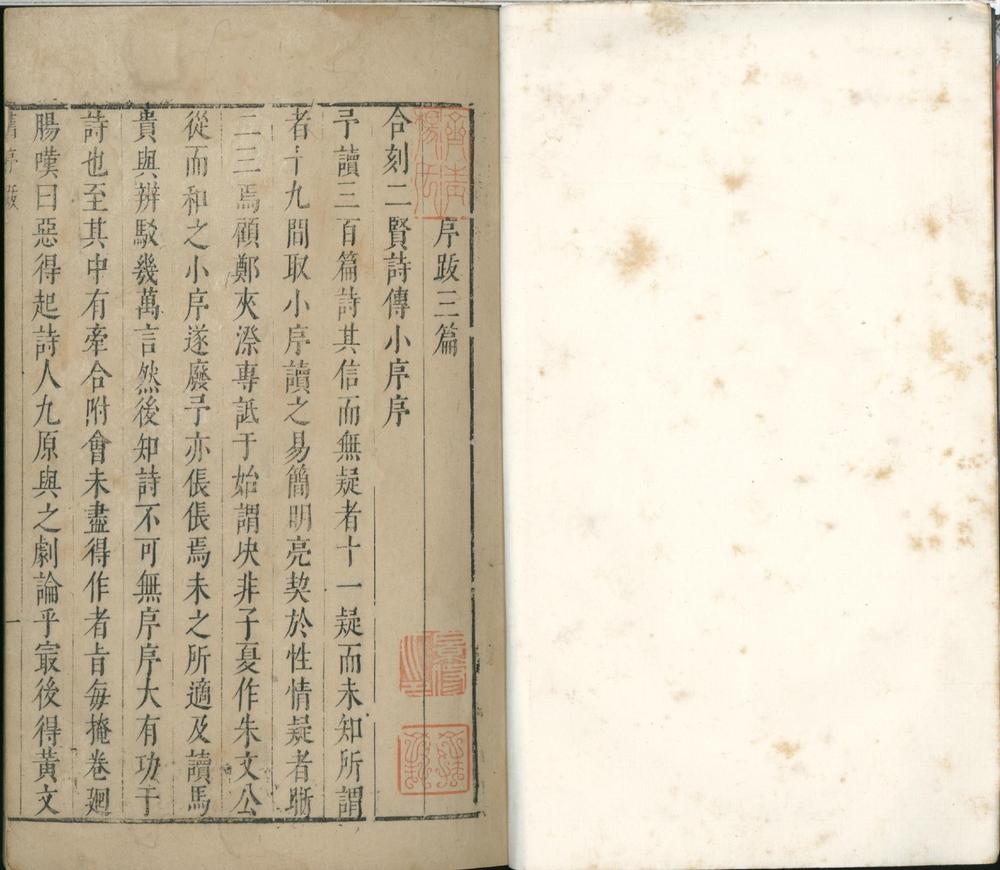 序跋三篇
合刻二賢詩傳小序序
予讀三百篇詩其信而無疑者十一疑而未知所謂
者十九間取小序讀之易簡明亮契於性情疑者晰
二三焉顧鄭夾漈專詆于始謂决非子夏作朱文公
從而和之小序遂廢予亦倀倀焉未之所適及讀馬
貴與辨駁幾萬言然後知詩不可無序序大有功于
詩也至其中有牽合附會未盡得作者旨每掩卷廻
腸嘆曰惡得起詩人九原與之劇論乎㝡後得黃文
序跋 一